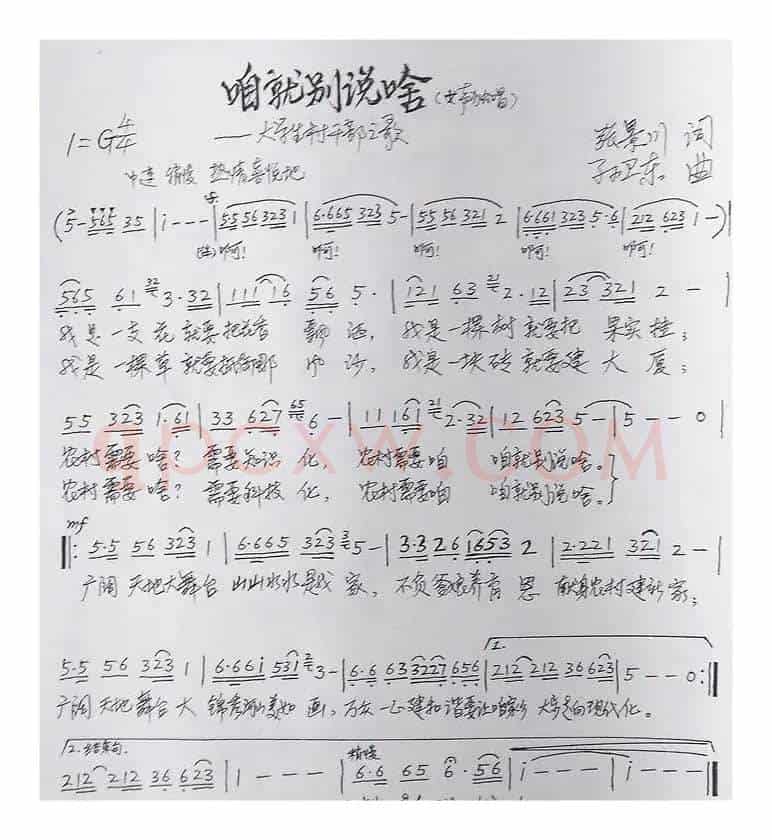 咱就别说啥(女声小合唱)
1=G4/4 ——大学生村干部之歌 张景川 词
中速 稍慢 热情喜悦地 孙卫东 曲
(5- 565 35 | i--- | 55 56 323 1 | 6·665 323 5- | 55 56 321 2 | 6·661 323 5·6 | 212 623 1-) |
啊啊! 啊啊! 啊啊! 啊啊! 啊啊!
565 61 3·32 | 111 16 56 5· | 121 63 2·12 | 23 321 2 - |
我是一支花就要把花香 飘 洒, 我是一棵树就要把 果实挂;
我是一棵草就要 那 沙, 我是一块砖就要建 大 厦;
55 323 1·61 | 33 627 6 - | 11 161 2·32 | 12 623 5- | 5--0 |
农村需要啥? 需要知识 化, 农村需要咱 咱就别说啥。
农村需要啥? 需要科技 化, 农村需要咱 咱就别说啥。
qpcxw.com
mf
‖: 5·5 56 323 1 | 6·665 323 5- | 3·3 26 1653 2 | 2·221 321 2- |
广阔 天地大舞台 山山水水是我 家, 不负爹娘养育 恩 献身农村建新家;
1.
5·5 56 323 1 | 6·661 531 3- | 6·6 633227 656 | 212 212 36 623 | 5--0 :‖
广阔 天地舞台 大 锦绣河山美如 画, 万众一心建和谐要让咱家乡 大步走向现代化。
2.结束句 稍慢
212 212 36 623 | 1--- | 6·6 65 6·56 | i--- | i--- ‖